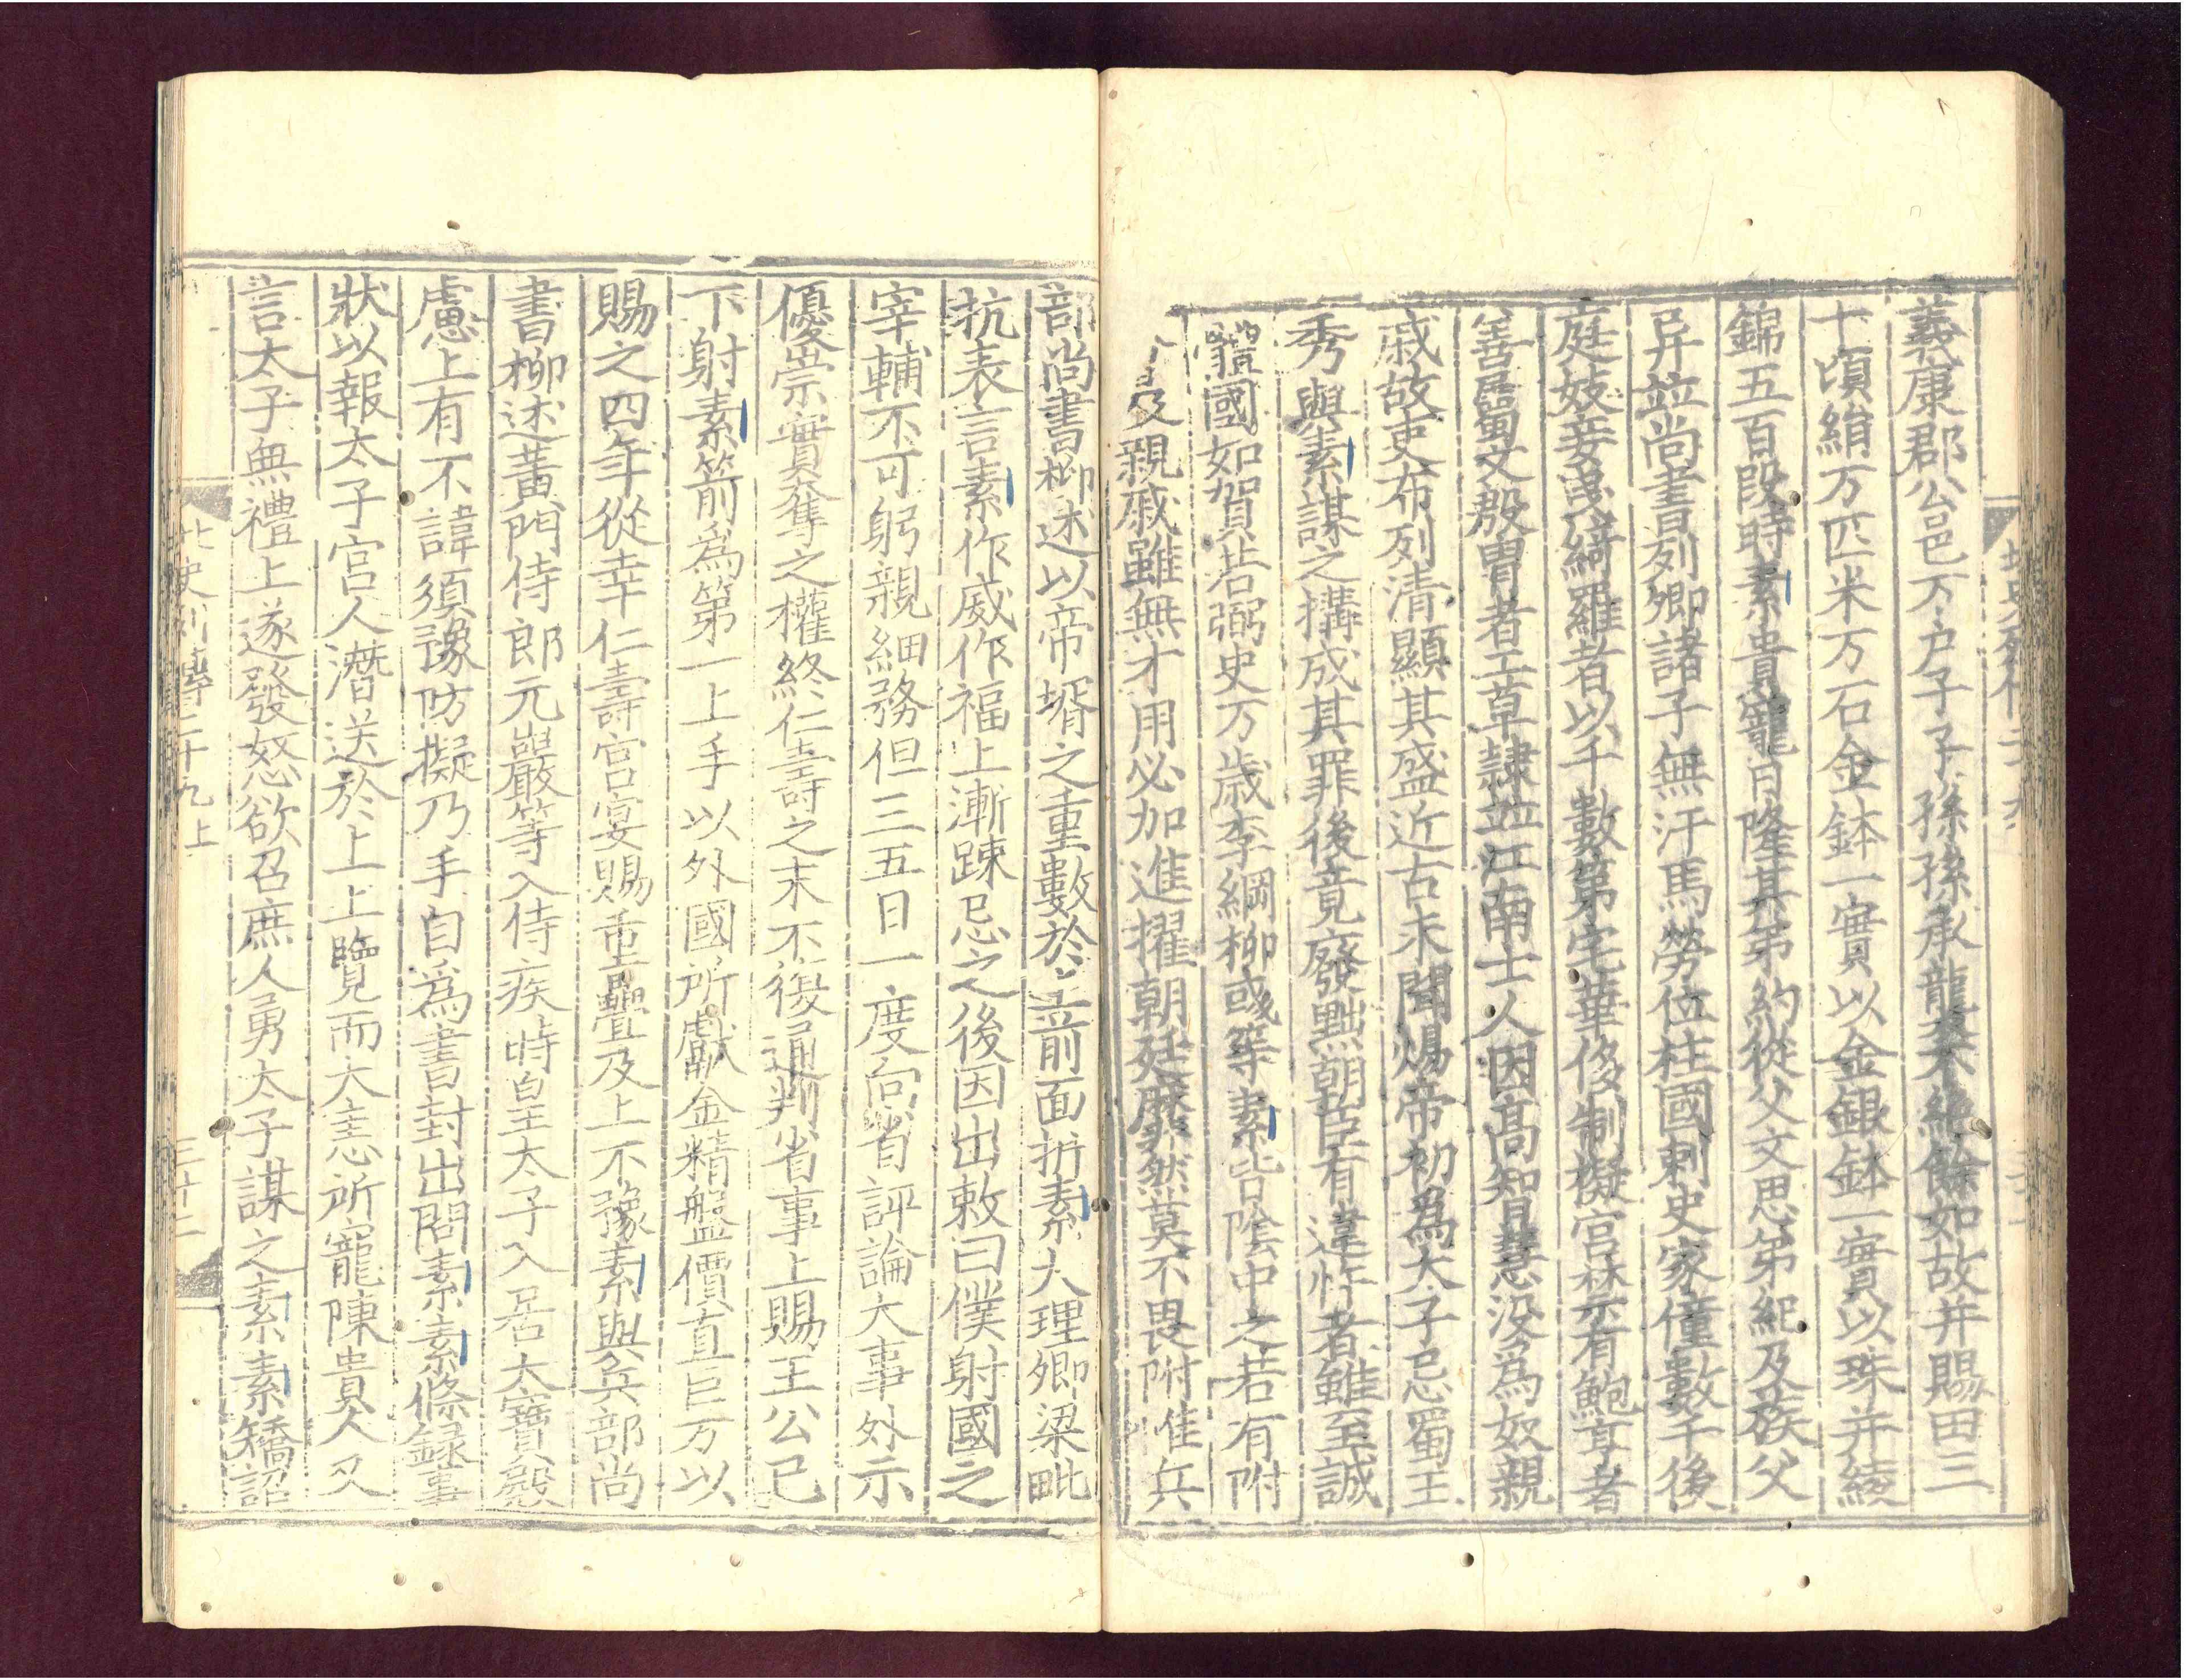 北史列傳二十九
義康郡公邑万戶子子孫孫承襲不絶餘如故并賜田三
十頃絹万匹米万石金鉢一實以金銀鉢一實以珠并綾
錦五百段時素貴寵日隆其弟約從父文思弟紀及族父
异並尚書列卿諸子無汗馬勞位柱國刺史家僮數千後
庭妓妾曳綺羅者以千數第宅華侈制擬宮禁有鮑亨者
善屬文殷胄者工草隸並江南士人因高智慧没爲奴親
戚故吏布列清顯其盛近古未聞煬帝初爲太子忌蜀王
秀與素謀之搆成其罪後竟廢黜朝臣有違忤者雖至誠
體國如賀若弼史万歲李綱柳彧等素皆陰中之若有附
會及親戚雖無才用必加進擢朝廷靡然莫不畏附唯兵
部尚書柳述以帝壻之重數於上前面折素大理卿梁毗
抗表言素作威作福上漸踈忌之後因出敕曰僕射國之
宰輔不可躬親細務但三五日一度向省評論大事外示
優崇實奪之權終仁壽之末不復通判省事上賜王公已
下射素箭爲第一上手以外國所獻金精盤價直巨万以
賜之四年從幸仁壽宮宴賜重疊及上不豫素與兵部尚
書柳述黃門侍郎元巖等入侍疾時皇太子入居大寶殿
慮上有不諱須豫防擬乃手自爲書封出問素素條錄事
狀以報太子宮人潛送於上上覽而大恚所寵陳貴人又
言太子無禮上遂發怒欲召庶人勇太子謀之素素矯詔
北史列傳二十九上
三十二